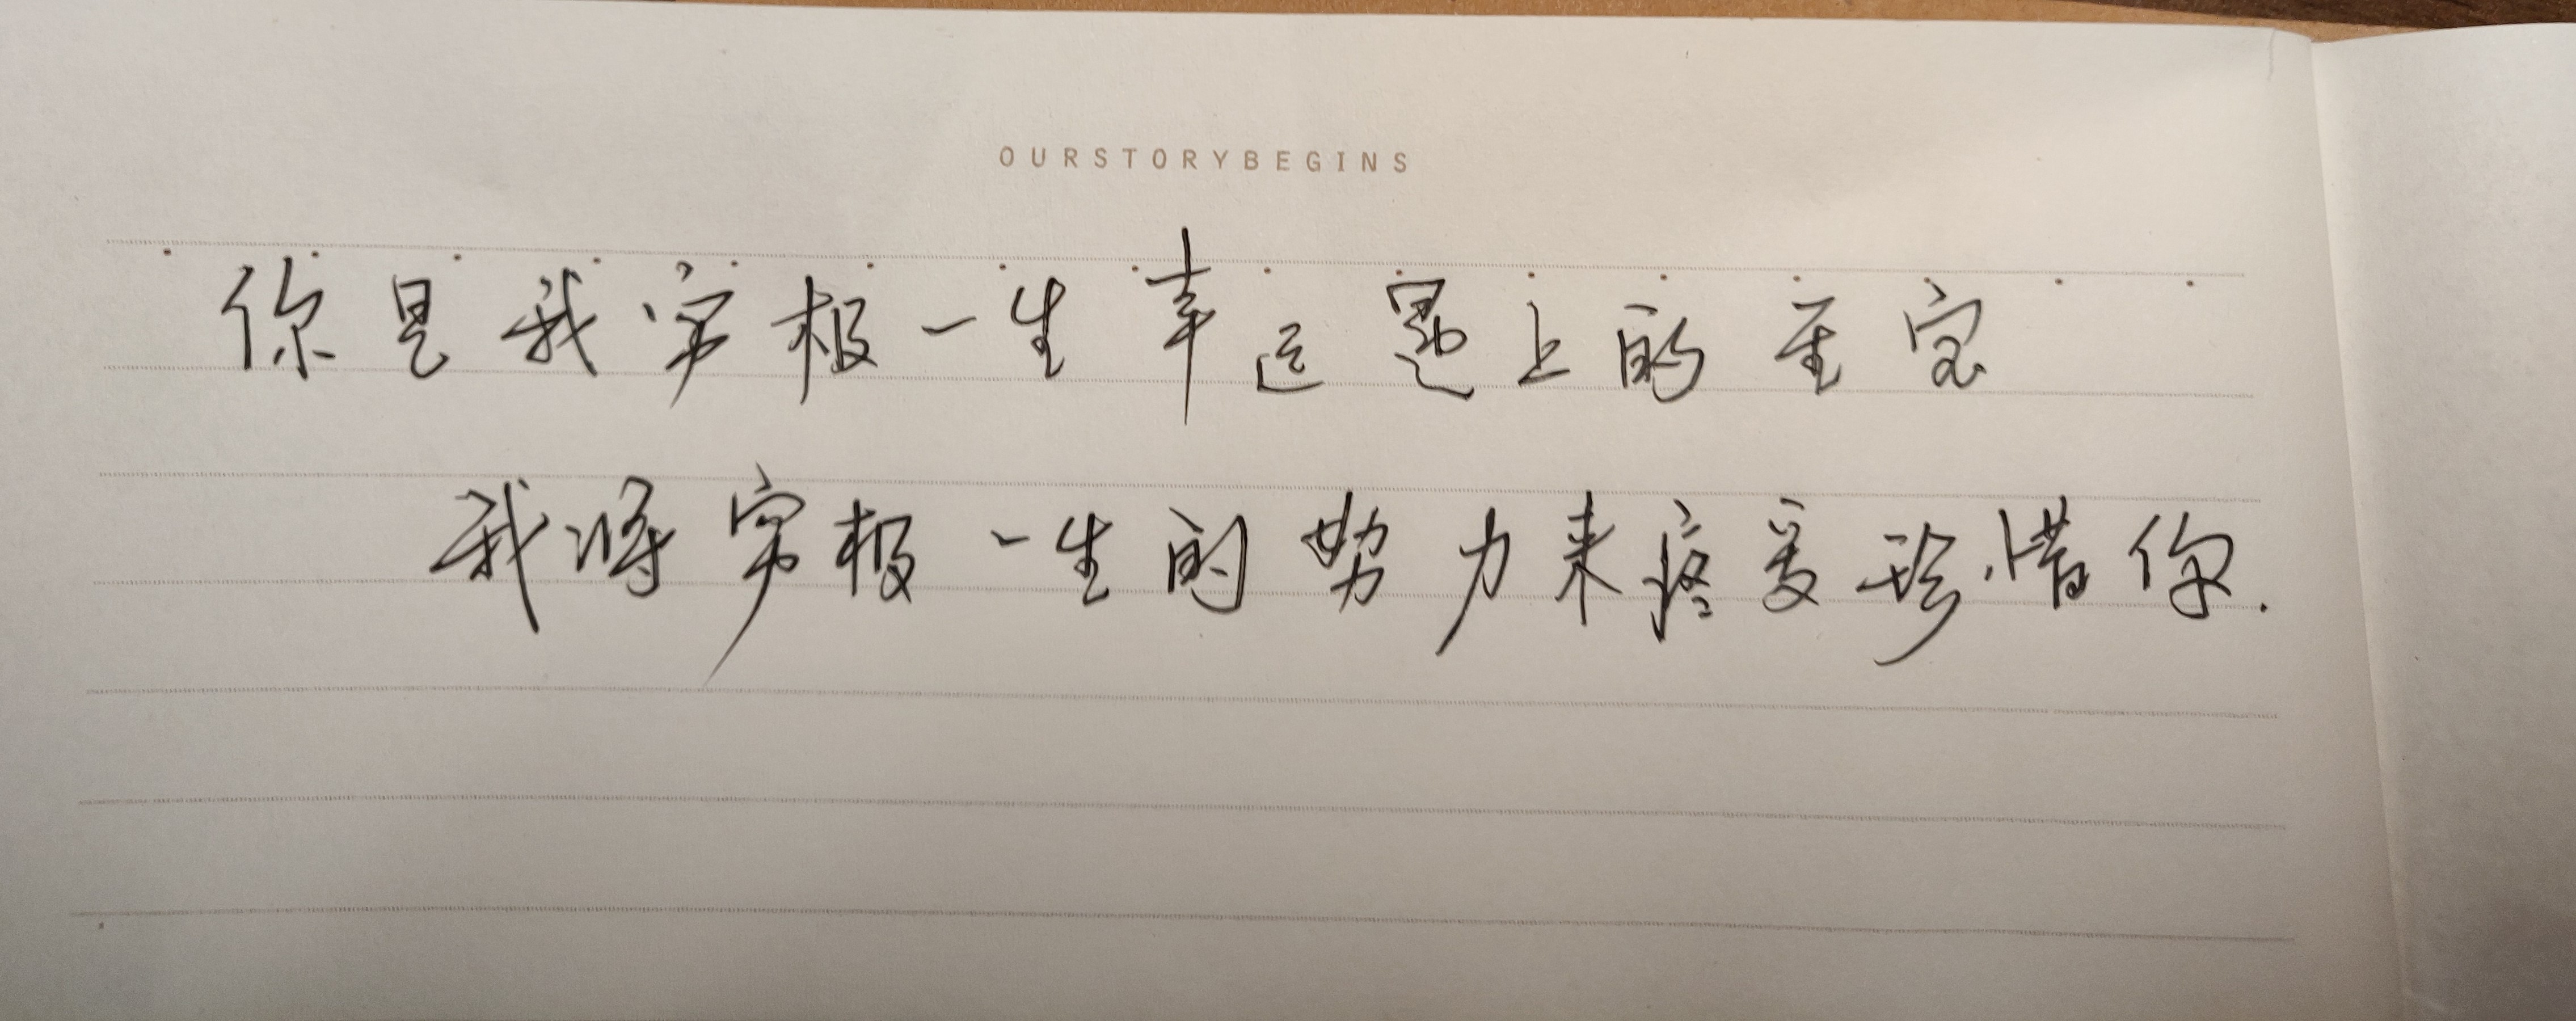 OURSTORYBEGINS
你是我穷极一生幸运遇上的至宝
我将穷极一生的努力来疼爱珍惜你.